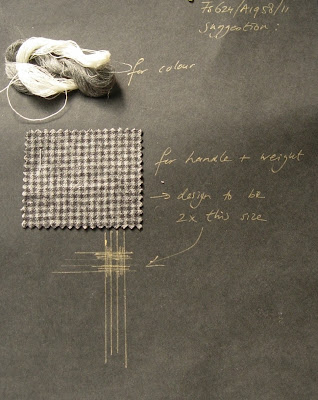 suggestion:
for colour
for handle + weight
→ design to be
2x this size